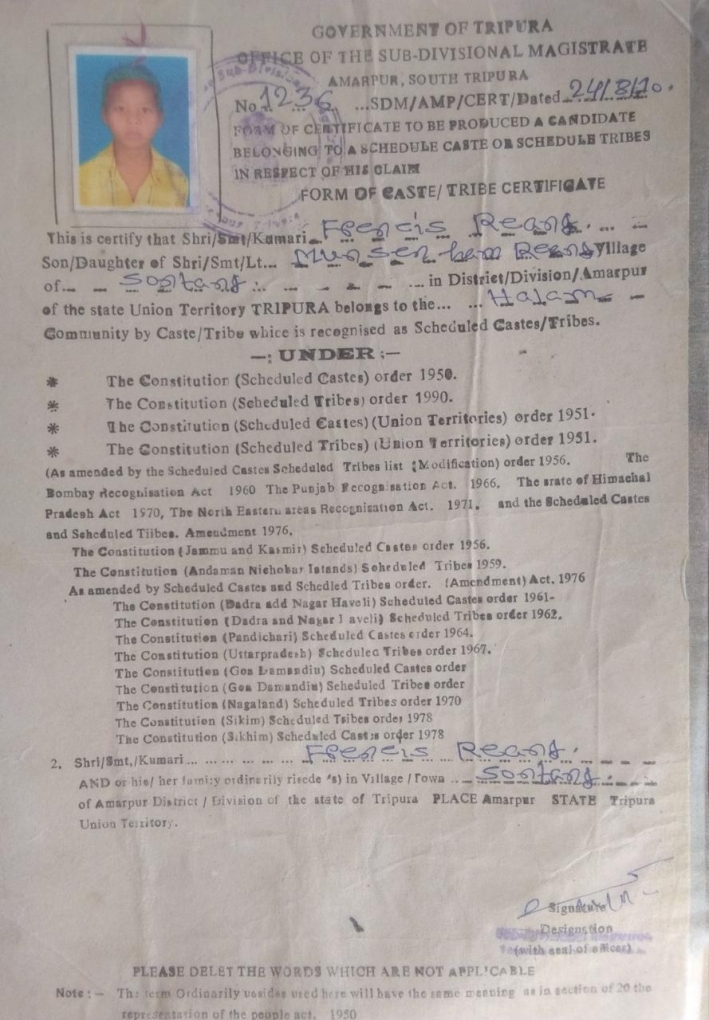 GOVERNMENT OF TRIPURA
OFFICE OF THE SUB-DIVISIONAL MAGISTRATE
AMARPUR, SOUTH TRIPURA
No 1236 ...SDM/AMP/CERT/Dated 24/8/10.
FORM OF CERTIFICATE TO BE PRODUCED A CANDIDATE
BELONGING TO A SCHEDULE CASTE OR SCHEDULE TRIBES
IN RESPECT OF HIS CLAIM
FORM OF CASTE/ TRIBE CERTIFICATE
This is certify that Shri/Smt/Kumari Frencis Reang.
Son/Daughter of Shri/Smt/Lt... Reang Village
of Sontang. in District/Division/Amarpur
of the state Union Territory TRIPURA belongs to the... Halam
Community by Caste/Tribe whice is recognised as Scheduled Castes/Tribes.
—: UNDER :—
* The Constitution (Scheduled Castes) order 1950.
* The Constitution (Scheduled Tribes) order 1990.
* The Constitution (Scheduled Castes) (Union Territories) order 1951.
* The Constitution (Scheduled Tribes) (Union Territories) order 1951.
(As amended by the Scheduled Castes Scheduled Tribes list (Modification) order 1956. The
Bombay Recognisation Act 1960 The Punjab Recognisation Act. 1966. The srate of Himachal
Pradesh Act 1970, The North Eastern areas Recognisation Act. 1971. and the Scheduled Castes
and Scheduled Tiibes. Amendment 1976.
The Constitution (Jammu and Kasmir) Scheduled Castes order 1956.
The Constitution (Andaman Nichobar Istands) Soheduled Tribes 1959.
As amended by Scheduled Castes and Schedled Tribes order. (Amendment) Act. 1976
The Constitution (Dadra add Nagar Haveli) Scheduled Castes order 1961-
The Constitution (Dadra and Nagar I aveli) Scheduled Tribes order 1962.
The Constitution (Pandichari) Scheduled Castes order 1964.
The Constitution (Uttarpradesh) Scheduled Tribes order 1967.
The Constitution (Goa Damandiu) Scheduled Castes order
The Constitution (Goa Damandiu) Scheduled Tribes order
The Constitution (Nagaland) Scheduled Tribes order 1970
The Constitution (Sikim) Scheduled Tribes order 1978
The Constitution (Sikhim) Scheduled Castes order 1978
2. Shri/Smt,/Kumari... Frencis Reang.
AND or his/ her family ordinarily risede 's) in Village / Town Sontang.
of Amarpur District / Division of the state of Tripura PLACE Amarpur STATE Tripura
Union Territory.
Signature
Designation
(with seal of officer)
PLEASE DELET THE WORDS WHICH ARE NOT APPLICABLE
Note :— The term Ordinarily used here will have the same meaning as in section of 20 the
representation of the people act. 1950